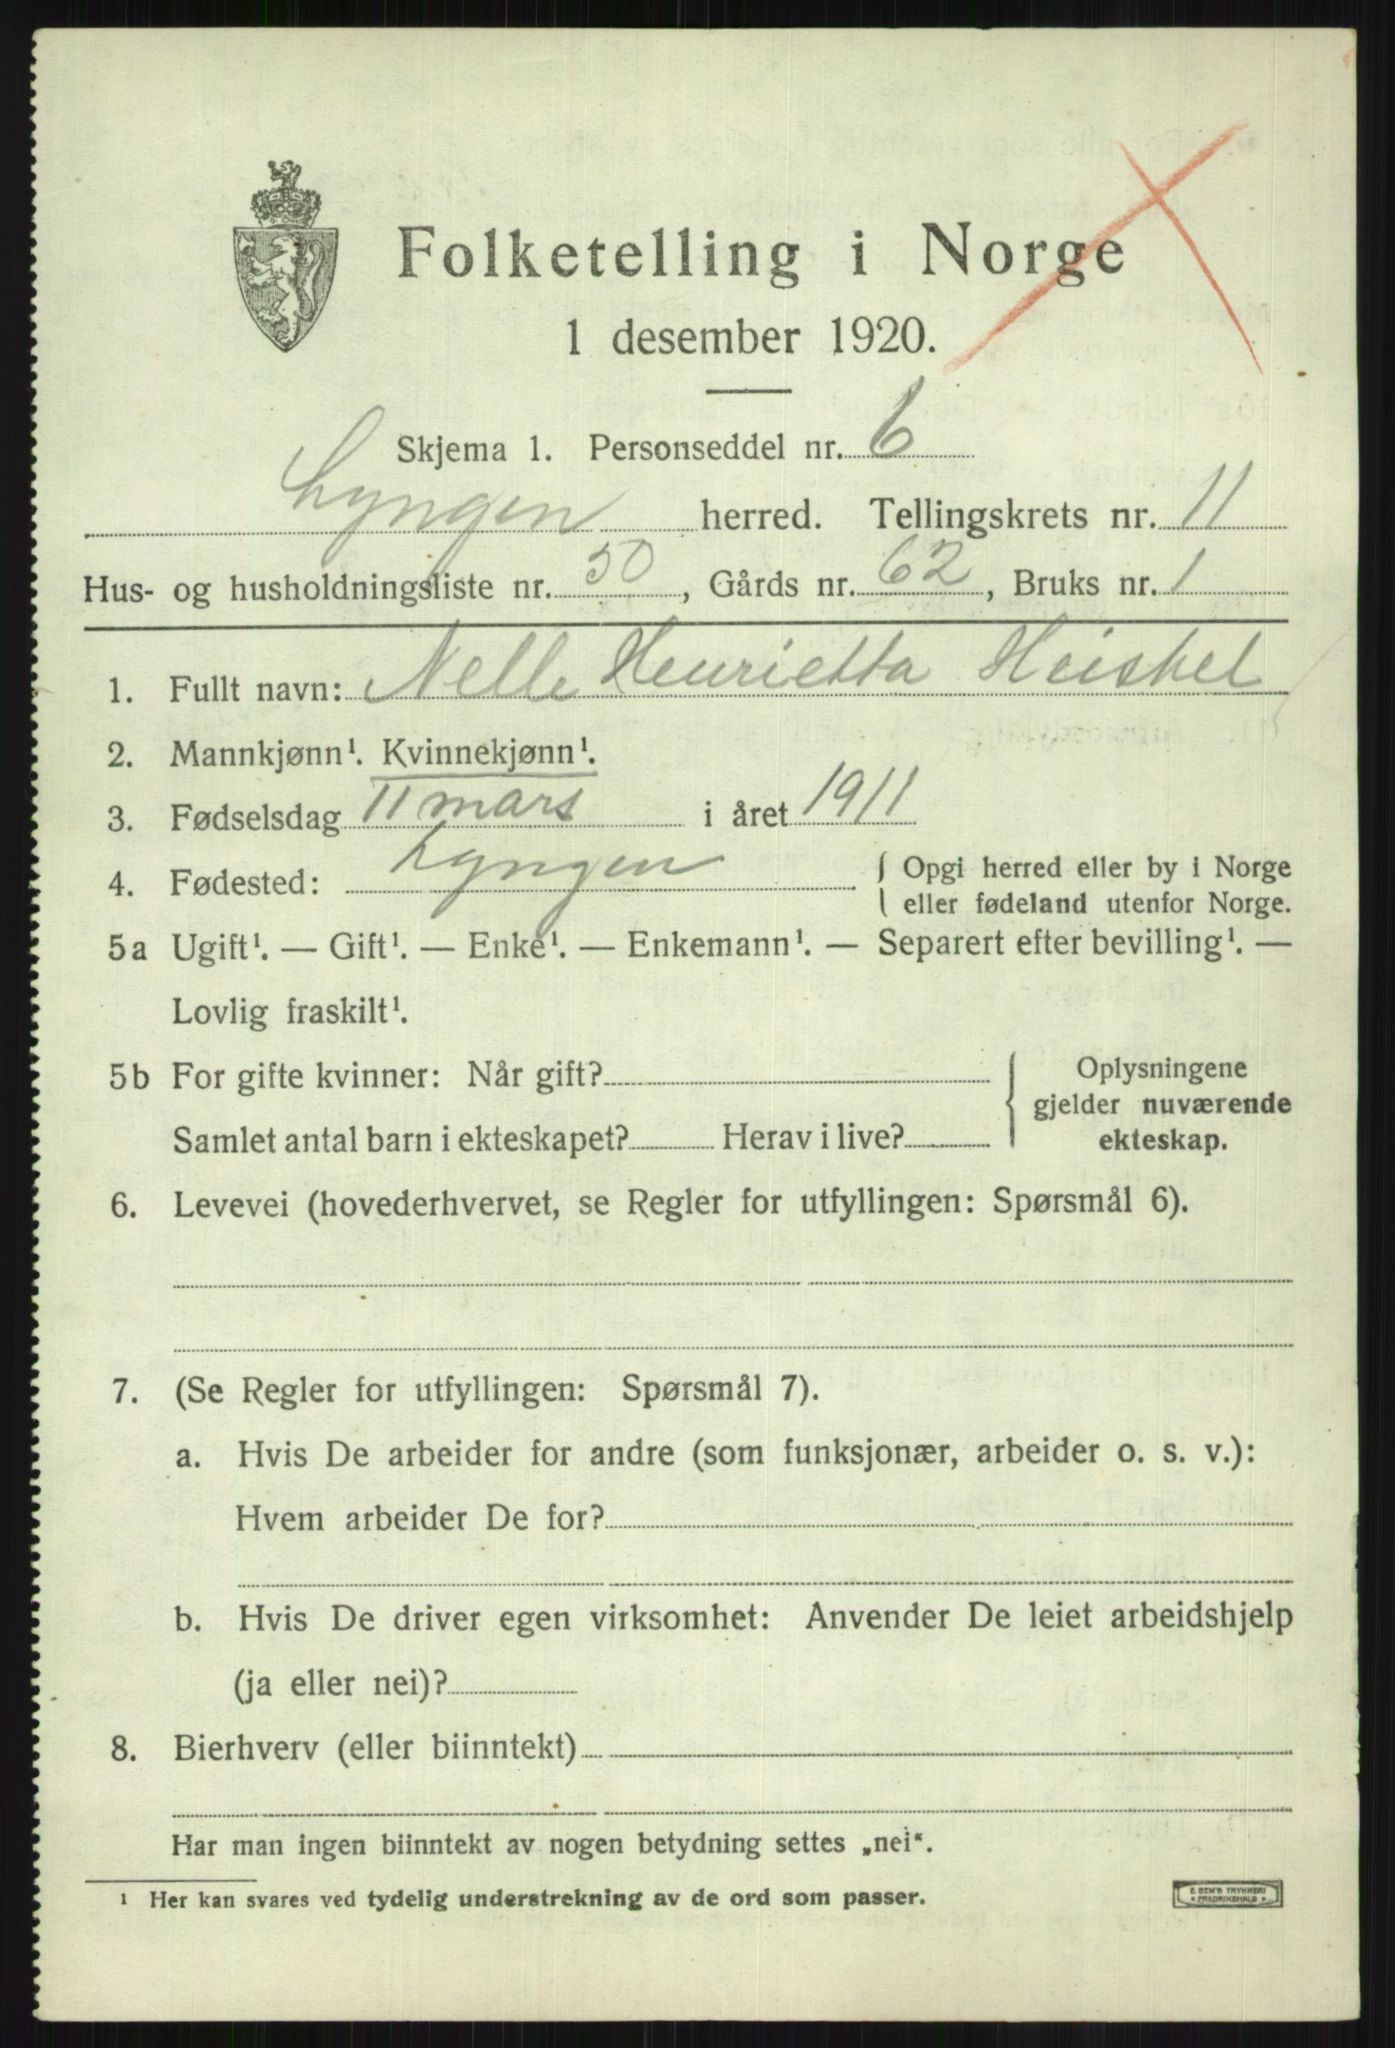 Folketelling i Norge
1 desember 1920.
Skjema 1. Personseddel nr. 6
Lyngen herred. Tellingskrets nr. 11
Hus- og husholdningsliste nr. 50, Gårds nr. 62, Bruks nr. 1
1. Fullt navn: Nelle Henrietta Heiskel
2. Mannkjønn¹. Kvinnekjønn¹.
3. Fødselsdag 11 mars i året 1911
4. Fødested: Lyngen { Opgi herred eller by i Norge
eller fødeland utenfor Norge.
5a Ugift¹. — Gift¹. — Enke¹. — Enkemann¹. — Separert efter bevilling¹. —
Lovlig fraskilt¹.
5b For gifte kvinner: Når gift? { Oplysningene
gjelder nuværende
Samlet antal barn i ekteskapet? Herav i live? ekteskap.
6. Levevei (hovederhvervet, se Regler for utfyllingen: Spørsmål 6).
7. (Se Regler for utfyllingen: Spørsmål 7).
a. Hvis De arbeider for andre (som funksjonær, arbeider o. s. v.):
Hvem arbeider De for?
b. Hvis De driver egen virksomhet: Anvender De leiet arbeidshjelp
(ja eller nei)?
8. Bierhverv (eller biinntekt)
Har man ingen biinntekt av nogen betydning settes „nei“.
¹ Her kan svares ved tydelig understrekning av de ord som passer.
E. SEM'S TRYKKERI
FREDRIKSHALD